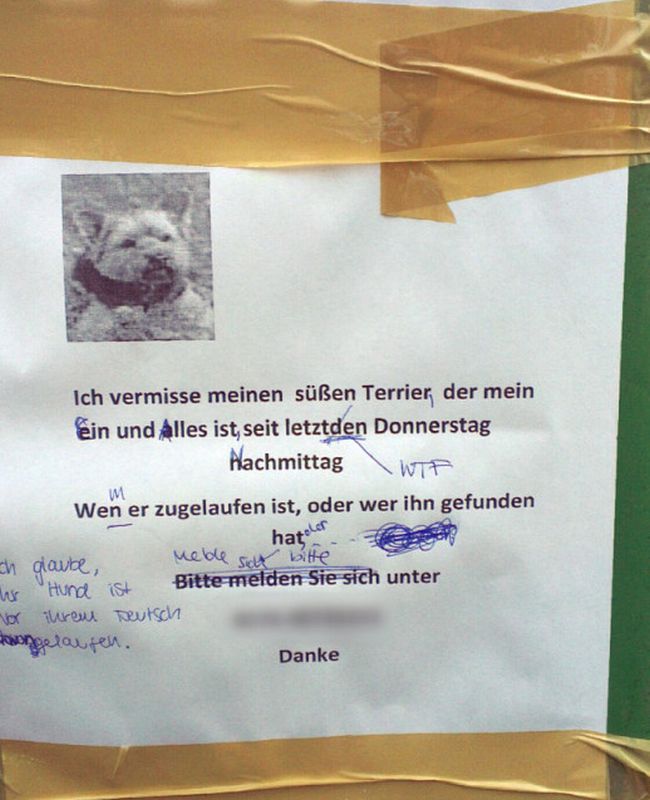 Ich vermisse meinen süßen Terrier, der mein
Ein und Alles ist, seit letztden Donnerstag
Nachmittag
WTF
m
Wen er zugelaufen ist, oder wer ihn gefunden
hat, der
Melde sich bitte
Bitte melden Sie sich unter
Danke
ch glaube,
Ihr Hund ist
vor ihrem Deutsch
gelaufen.